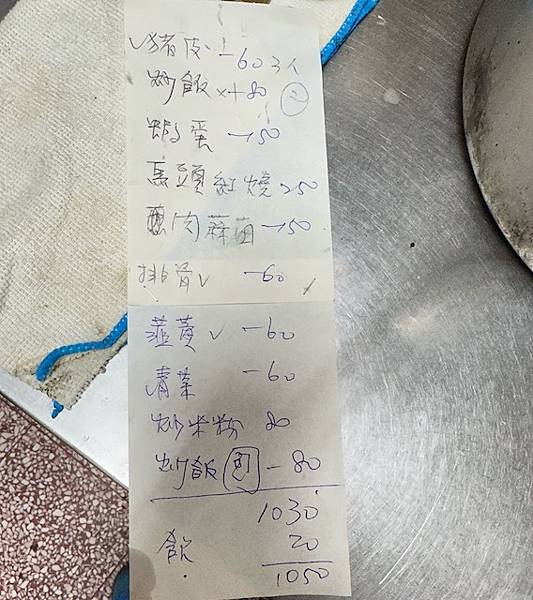 ✓豬皮 - 60 3人
炒飯 x大 80 ②
蝦蛋 - 150
馬頭紅燒 250
肉蒜苗 - 150
排骨✓ - 60
韮黃✓ - 60
青菜 - 60
炒米粉 80
炒飯 - 80
1030
飲 20
1050